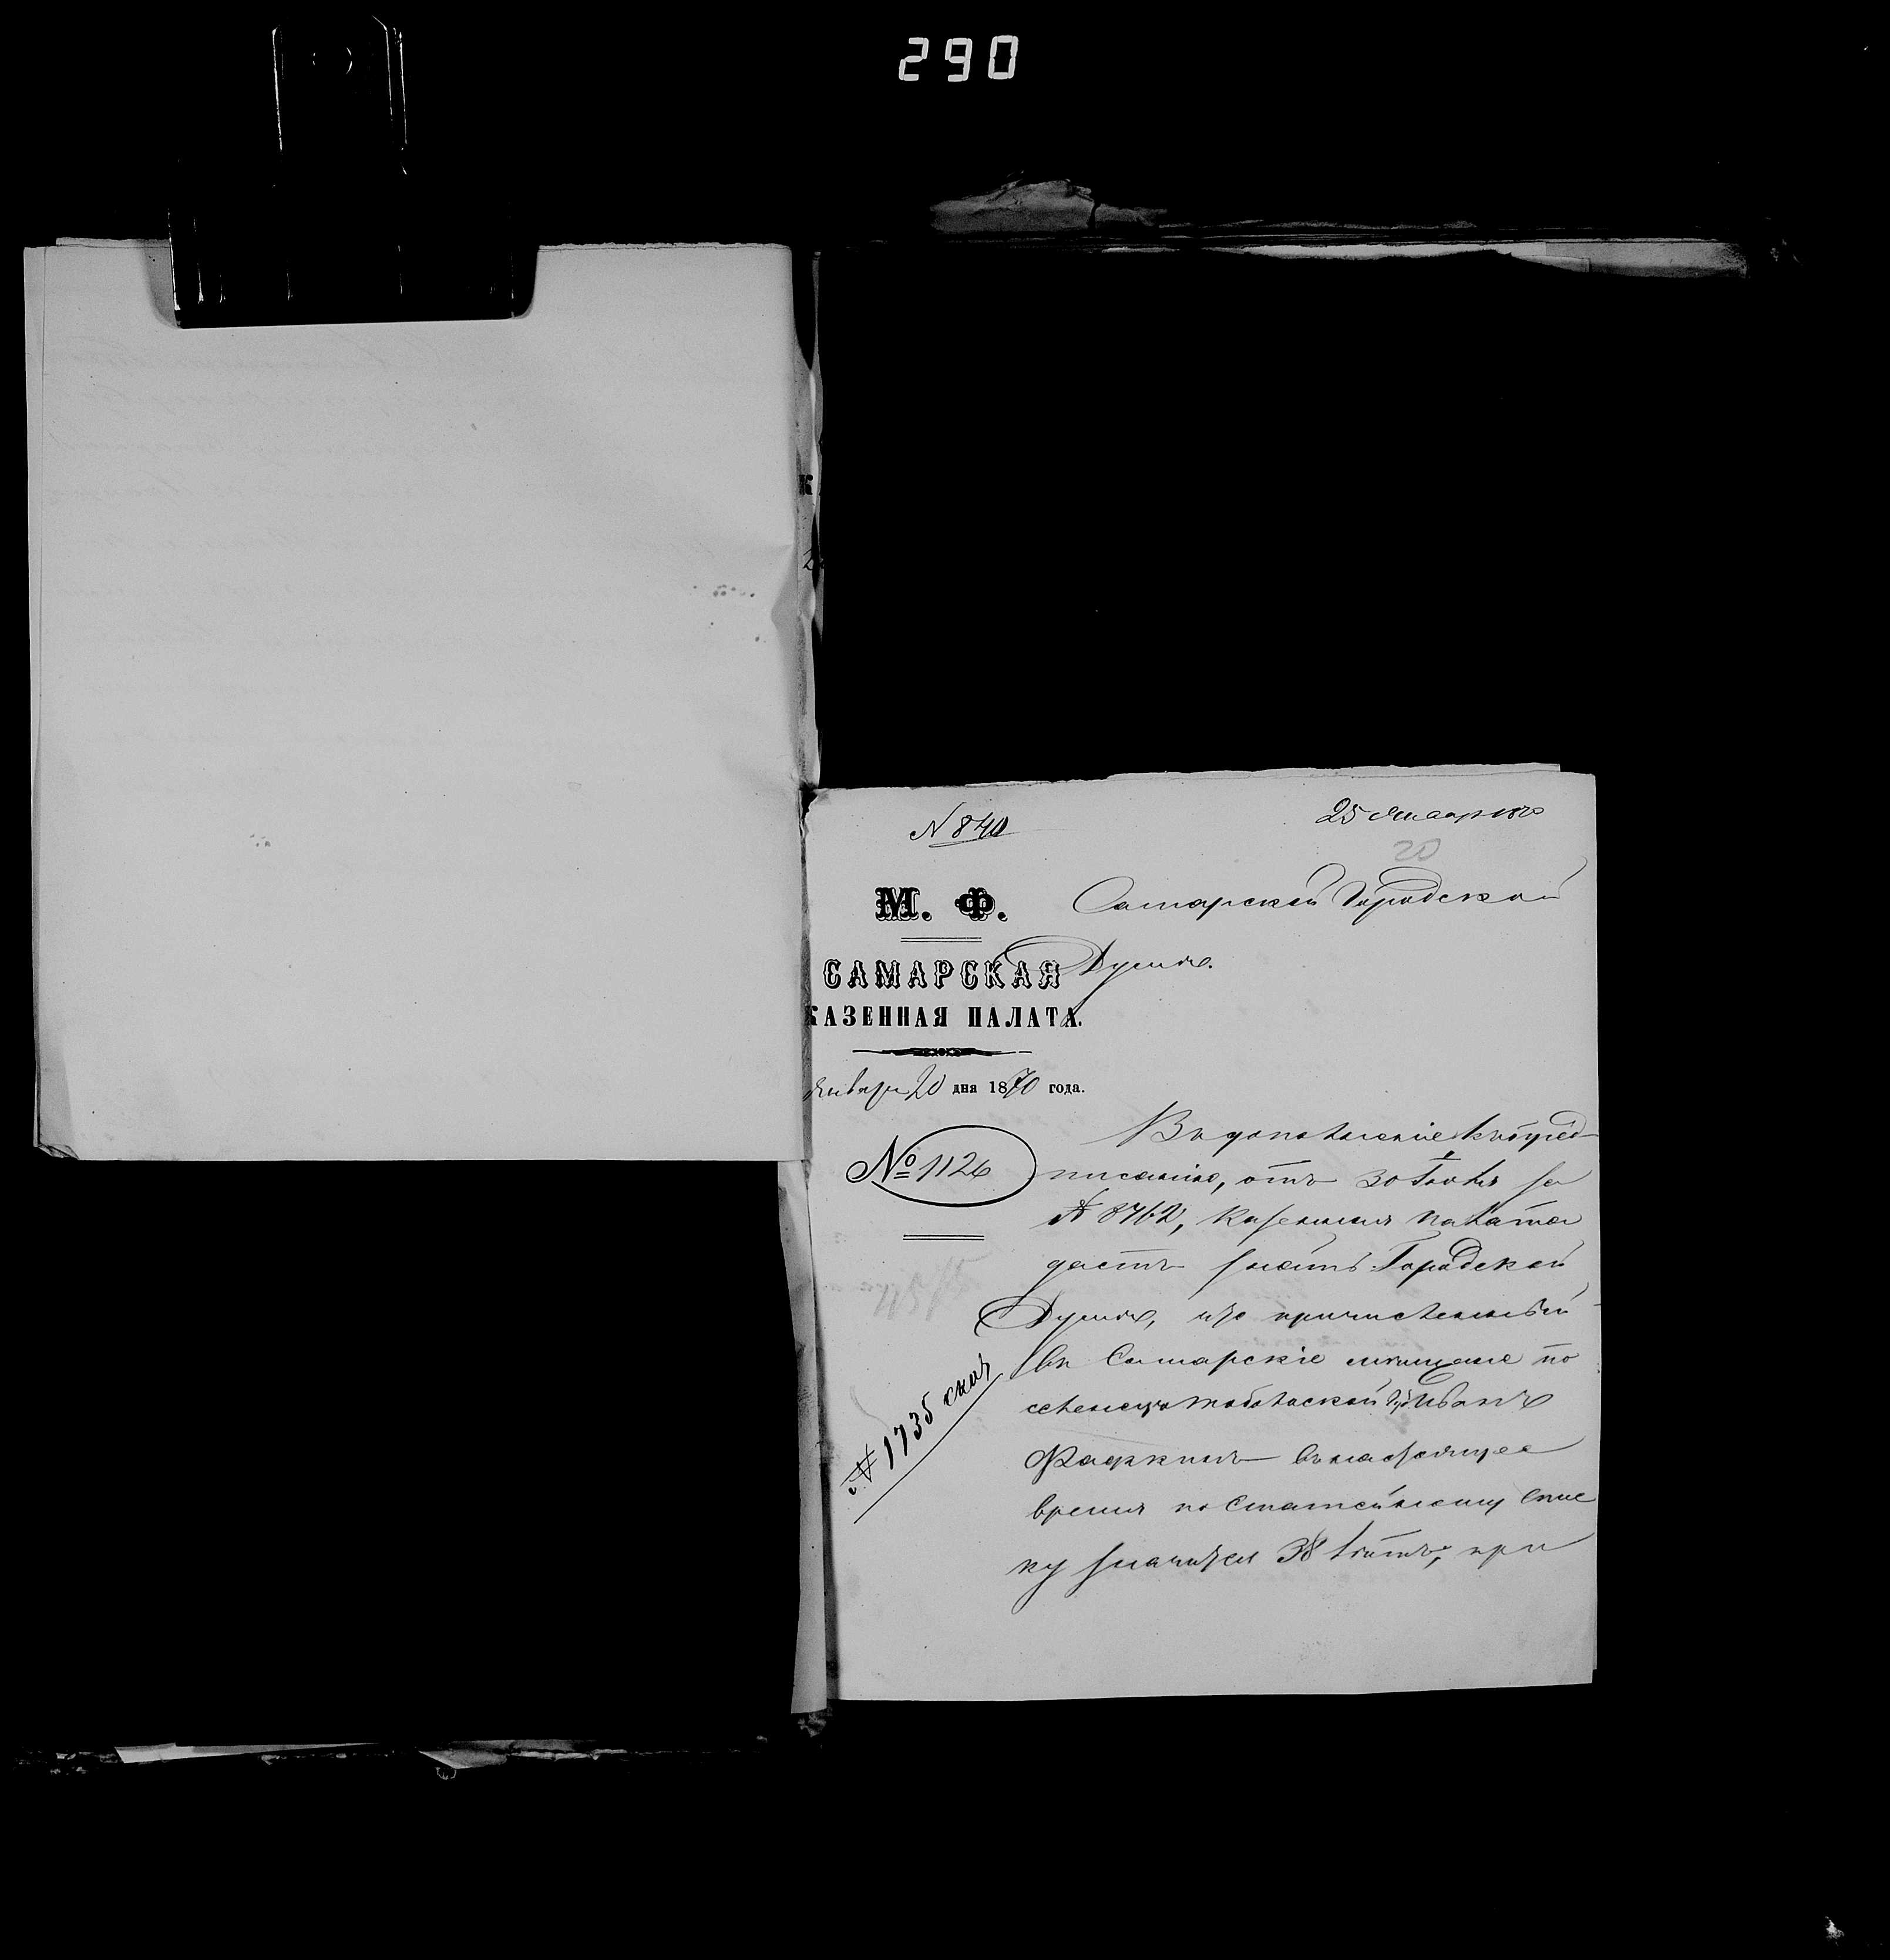 290
N 840
25 Январ 1870
20
М. Ф.
САМАРСКАЯ
КАЗЕННАЯ ПАЛАТА.
Января 20 дня 1870 года.
№ 1126
N 1735
Самарской Городской
Думѣ.
Въ дополненіе къ пред
писанію, отъ 30 Іюля за
№ 8762, Казенная палата
даетъ знать Городской
Думѣ, что причисленный
въ Самарскіе мѣщане по
селенецъ Тобольской Губ Иванъ
въ настоящее
время по Статейному Спис
ку значится 38 лѣтъ, при